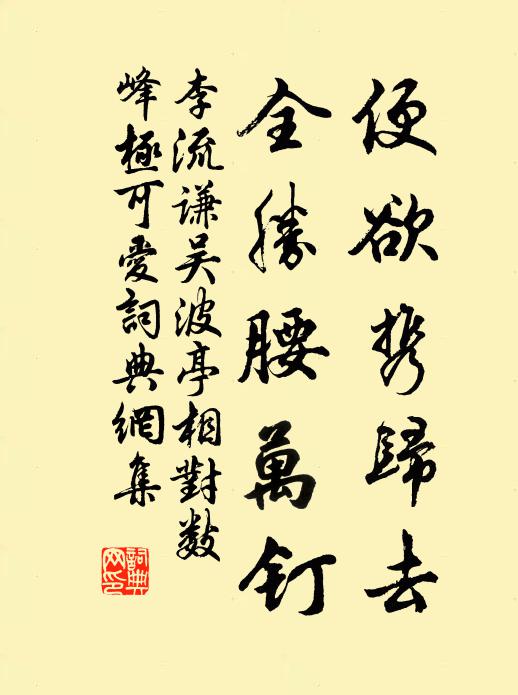 便欲携歸去
全勝腰萬釘
李流谦吴波亭相對数
峰極可愛詞典網集
詞典网印